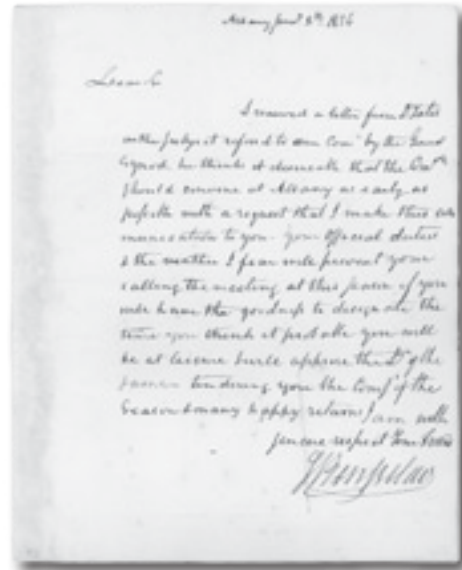 Albany Jany 8th 1826
Dear Sir
I received a letter from Dr Yates
on the subject referred to our Com by the
Synod he thinks it desireable that the Comtee
should convene at Albany as early as
possible with a request that I make this com
munication to you. your official duties
& the weather I fear will prevent your
calling the meeting at this season if you
will have the goodness to designate the
time you think it probable you will
be at leisure I will apprise the Dr of the
same tendering you the Comps of the
Season & many happy returns I am with
sincere respect Your